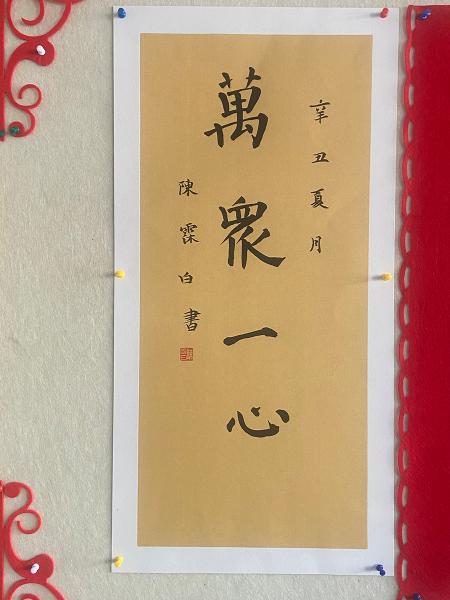 辛丑夏月
萬眾一心
陳霂白書